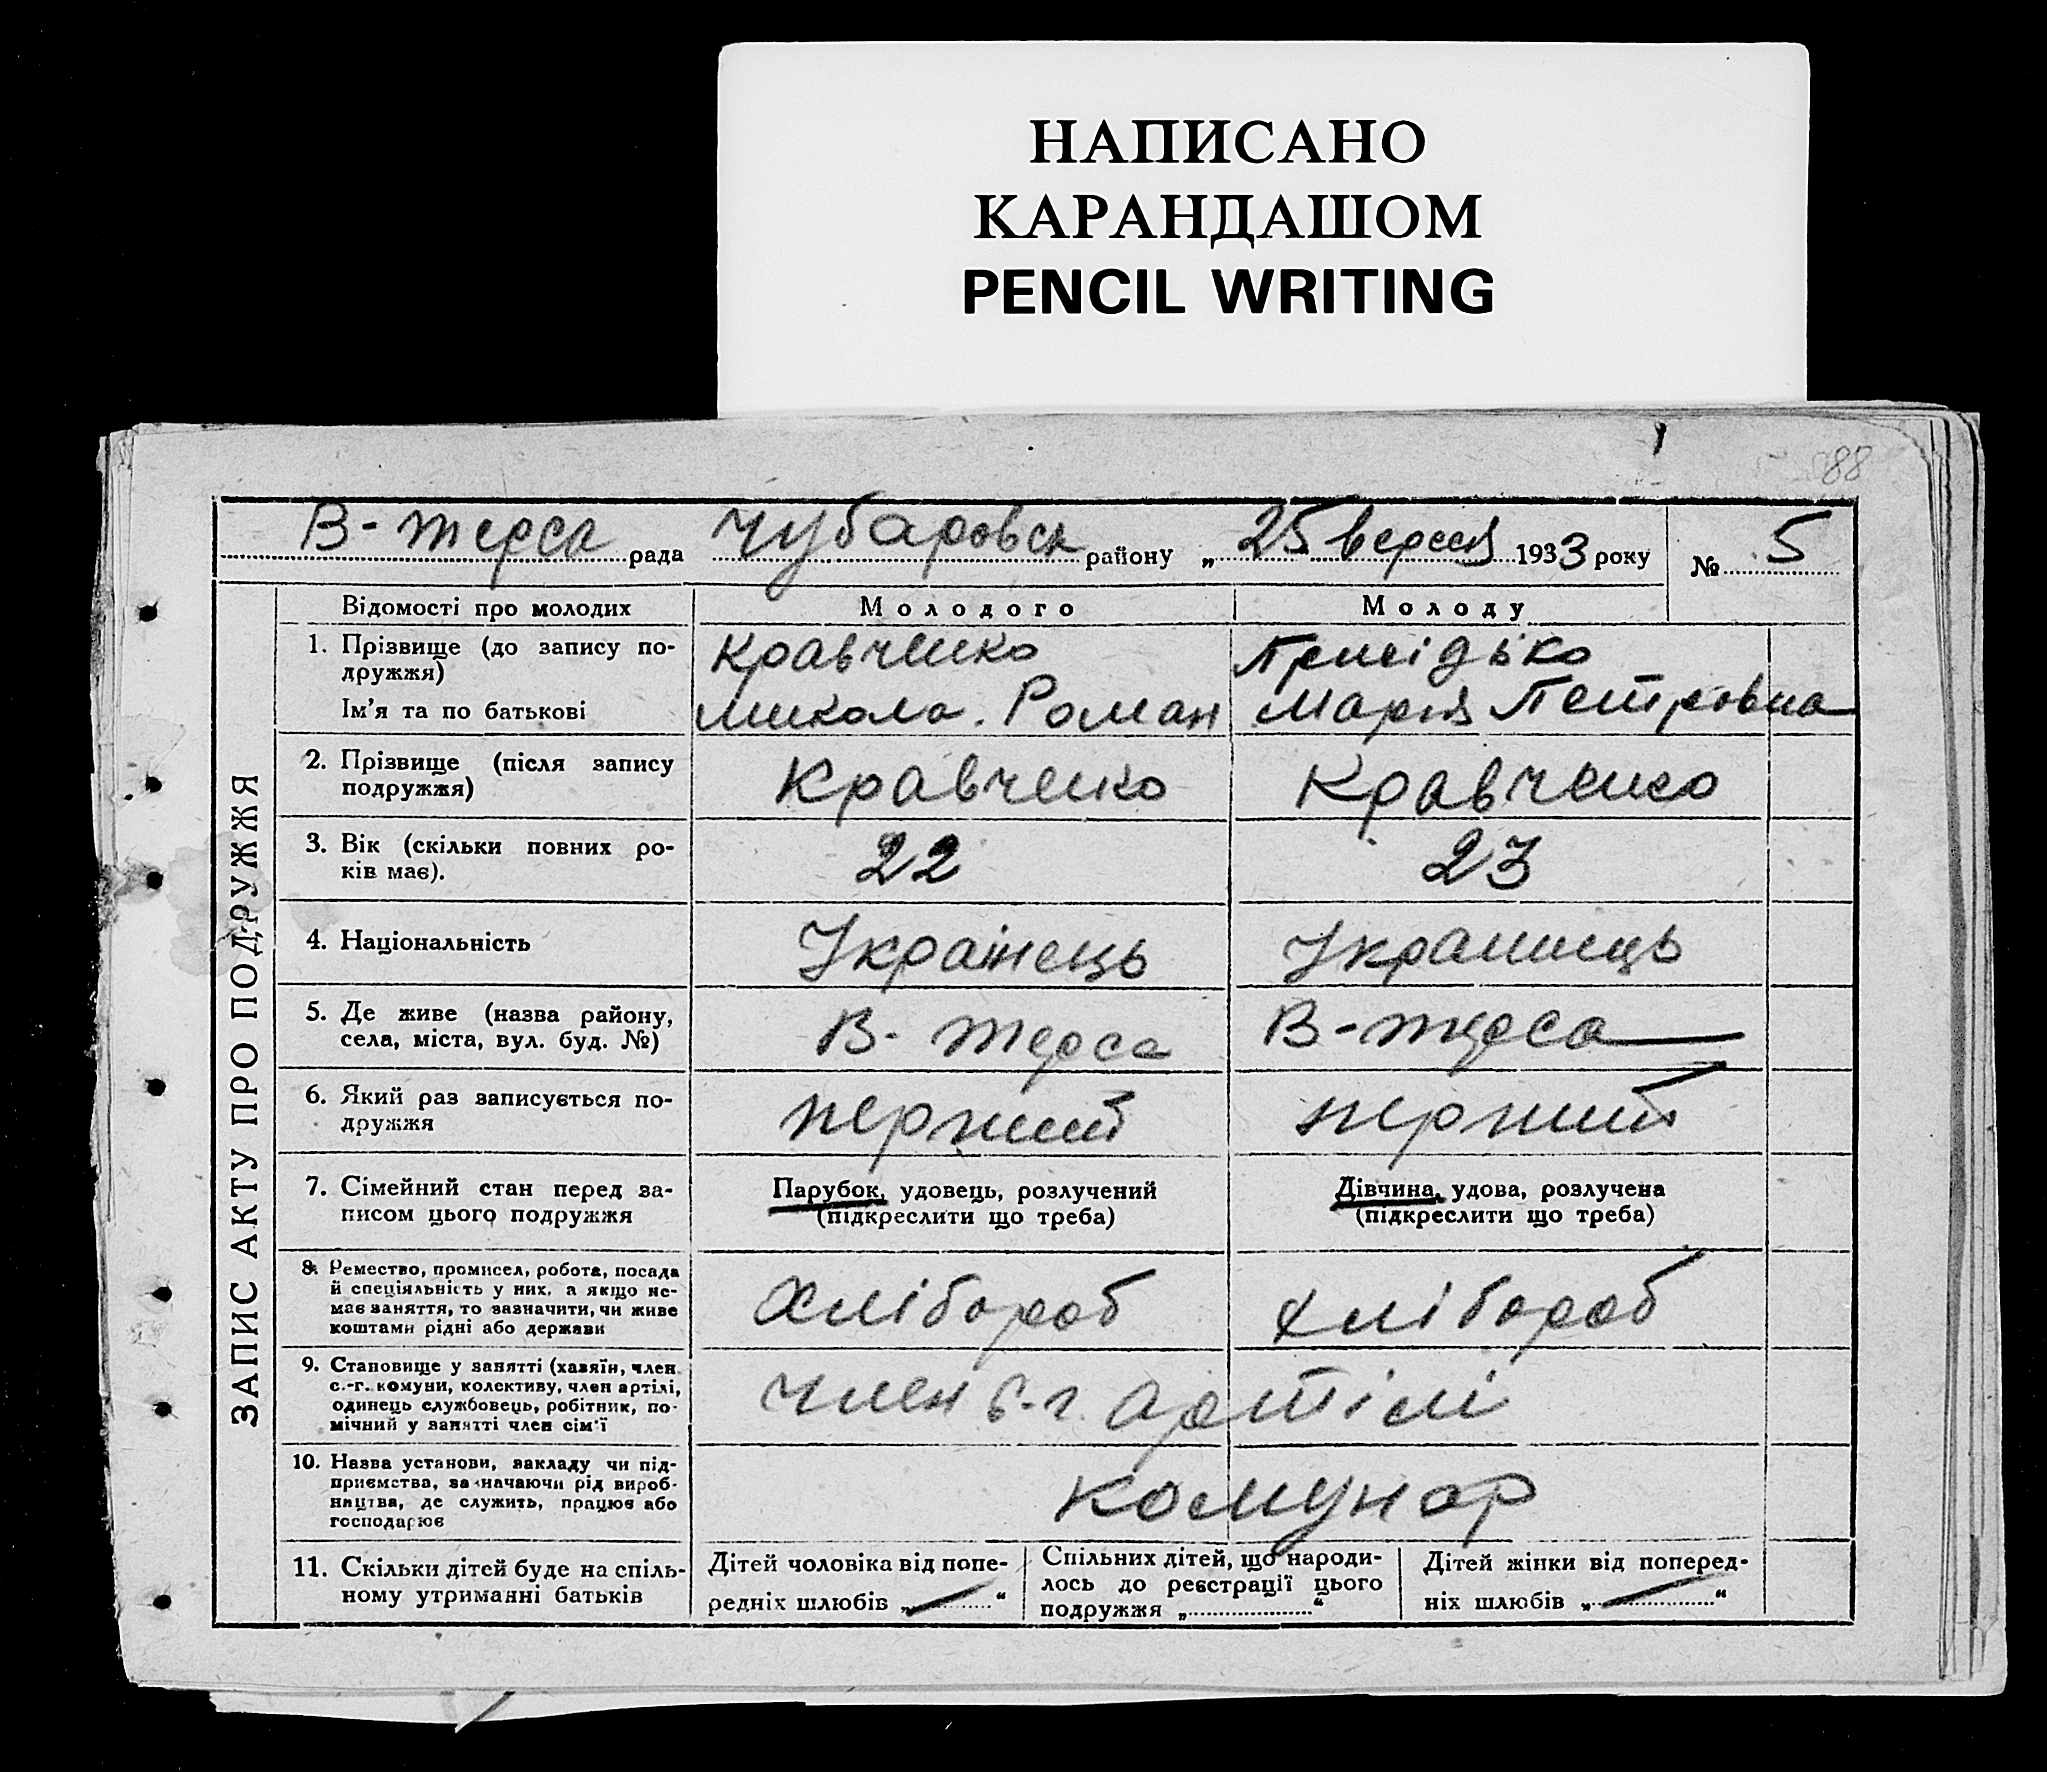 НАПИСАНО
КАРАНДАШОМ
PENCIL WRITING
88
В-терса рада Чубаровск району „ 25 вересня 1933 року № 5
ЗАПИС АКТУ ПРО ПОДРУЖЖЯ
Відомості про молодих Молодого Молоду
1. Прізвище (до запису по-
дружжя)
Кравченко
Ім'я та по батькові Микола. Роман Марія Петровна
2. Прізвище (після запису
подружжя)
Кравченко Кравченко
3. Вік (скільки повних ро-
ків має).
22 23
4. Національність Українець Украинець
5. Де живе (назва району,
села, міста, вул. буд. №)
В-Терса В-терса
6. Який раз записується по-
дружжя
перший перший
7. Сімейний стан перед за-
писом цього подружжя
Парубок, удовець, розлучений
(підкреслити що треба)
Дівчина, удова, розлучена
(підкреслити що треба)
8. Ремество, промисел, робота, посада
й спеціяльність у них, а якщо не-
має заняття, то зазначити, чи живе
коштами рідні або держави
Хлібороб хлібороб
9. Становище у занятті (хазяїн, член
с.-г. комуни, колективу, член артілі,
одинець службовець, робітник, по-
мічний у занятті член сім'ї
член с-г. артілі
10. Назва установи, закладу чи під-
приємства, зазначаючи рід вироб-
ництва, де служить, працює або
господарює
комунар
11. Скільки дітей буде на спіль-
ному утриманні батьків
Дітей чоловіка від попе-
редніх шлюбів „ “
Спільних дітей, що народи-
лось до реєстрації цього
подружжя „ “
Дітей жінки від поперед-
ніх шлюбів „ “